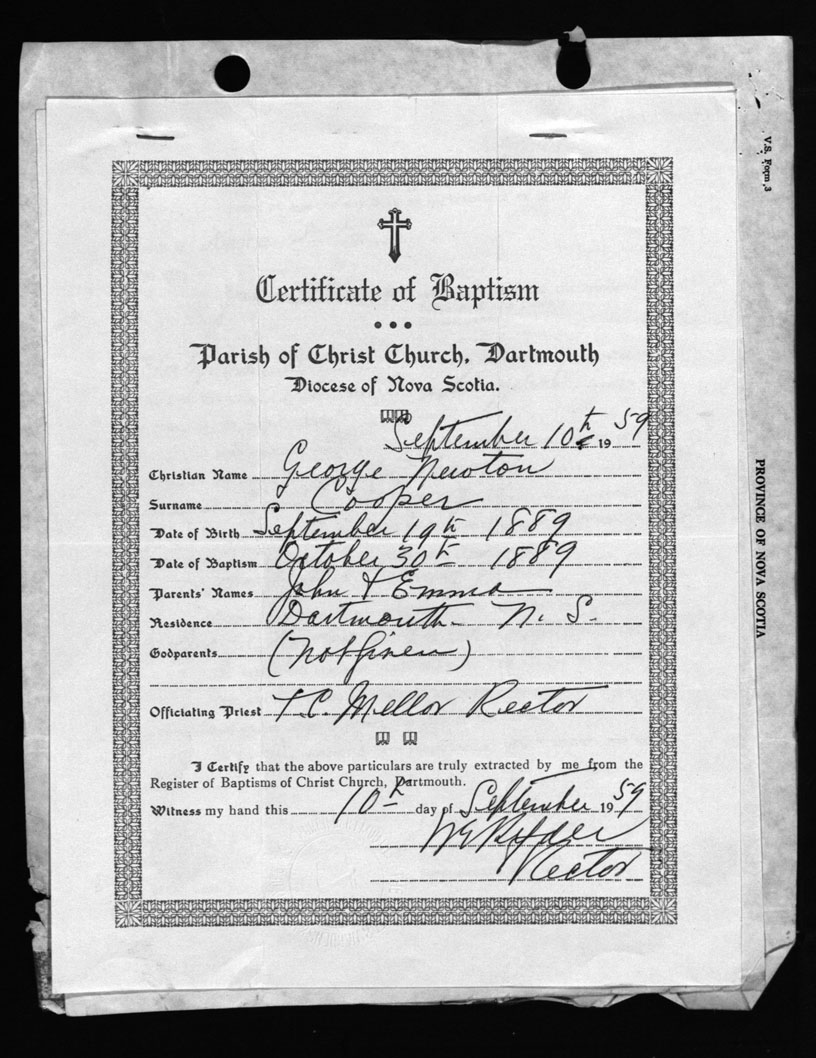 Certificate of Baptism
Parish of Christ Church, Dartmouth
Diocese of Nova Scotia.
September 10th 1959
Christian Name George Newton
Surname Cooper
Date of Birth September 19th 1889
Date of Baptism October 30th 1889
Parents' Names John & Emma
Residence Dartmouth - N. S.
Godparents (Not given)
Officiating Priest T. C. Mellor Rector
I Certify that the above particulars are truly extracted by me from the
Register of Baptisms of Christ Church, Dartmouth.
Witness my hand this 10th day of September 1959
Rector
V.S. Form 3
PROVINCE OF NOVA SCOTIA